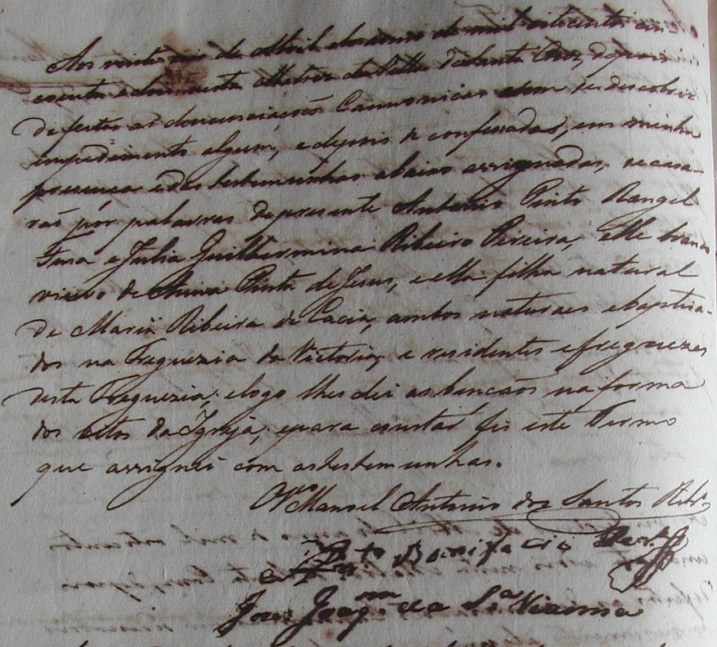 Aos vinte seis de Abril do anno de mil oitocentos ses
centa e dous nesta Matriz da Villa de Santa Cruz, depois
de feitas as denunciaçoēs Cannonicas sem se descobrir
impedimento algum, e depois de confessados, em minha
presença e das testemunhas abaixo assignadas, se casa-
rão por palavras de presente Antonio Pinto Rangel
e Julia Guilhermina Ribeiro Pereira, elle branco
viuvo de Anna Pinta de Jesus, e ella filha natural
de Maria Ribeira de Cacia, ambos naturaes e baptisa-
dos na Freguezia da Victoria, e residentes e freguezes
desta Freguezia; e logo lhes dei as bençaõs na forma
dos ritos da Igreja, e para constar fis este Termo
que assignei com as testemunhas.
Manoel Antonio dos Santos Ribrº
Bonifacio
José Joaqm da Sª Vianna